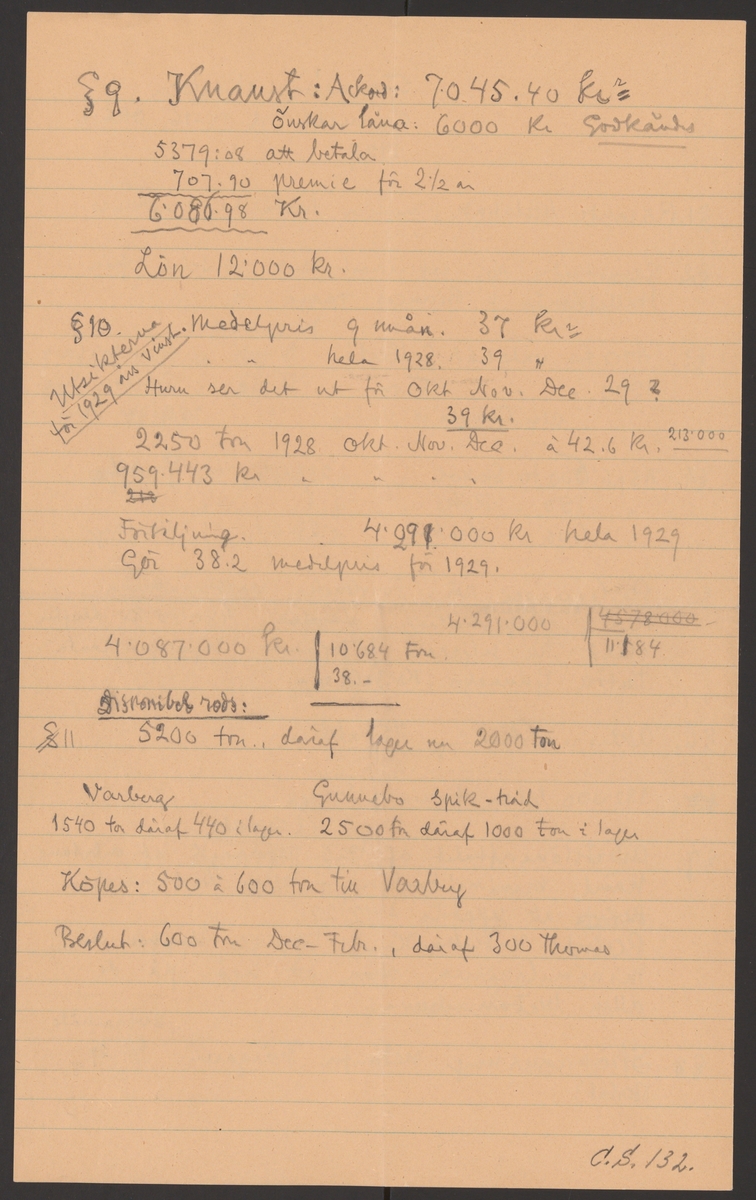 § 9. Knaust: Ackord: 7.045.40 kr
Önskar låna: 6000 kr Godkändes
5379:08 att betala
707.90 premie för 2½ år
6.086.98 Kr.
Lön 12.000 kr.
§10. Medelpris 9 mån. 37 kr
Utsikterna
för 1929 års vinst.
" " hela 1928. 39 "
Huru ser det ut för Okt Nov. Dec. 29 ?
39 kr.
2250 ton 1928 Okt. Nov. Dec. à 42.6 kr. 213.000
959.443 kr " " " "
213
Försäljning. 4.291.000 kr hela 1929
Gör 38.2 medelpris för 1929.
4.291.000 4578.000
11.184
4.087.000 kr. 10.684 ton
38.-
Disponibel rods:
§ 11 5200 ton., däraf lager nu 2000 ton
Varberg Gunnebo spik-tråd
1540 ton däraf 440 i lager. 2500 ton däraf 1000 ton i lager
Köpes: 500 à 600 ton till Varberg
Beslut: 600 ton Dec-Febr., däraf 300 Thomas
C.S. 132.